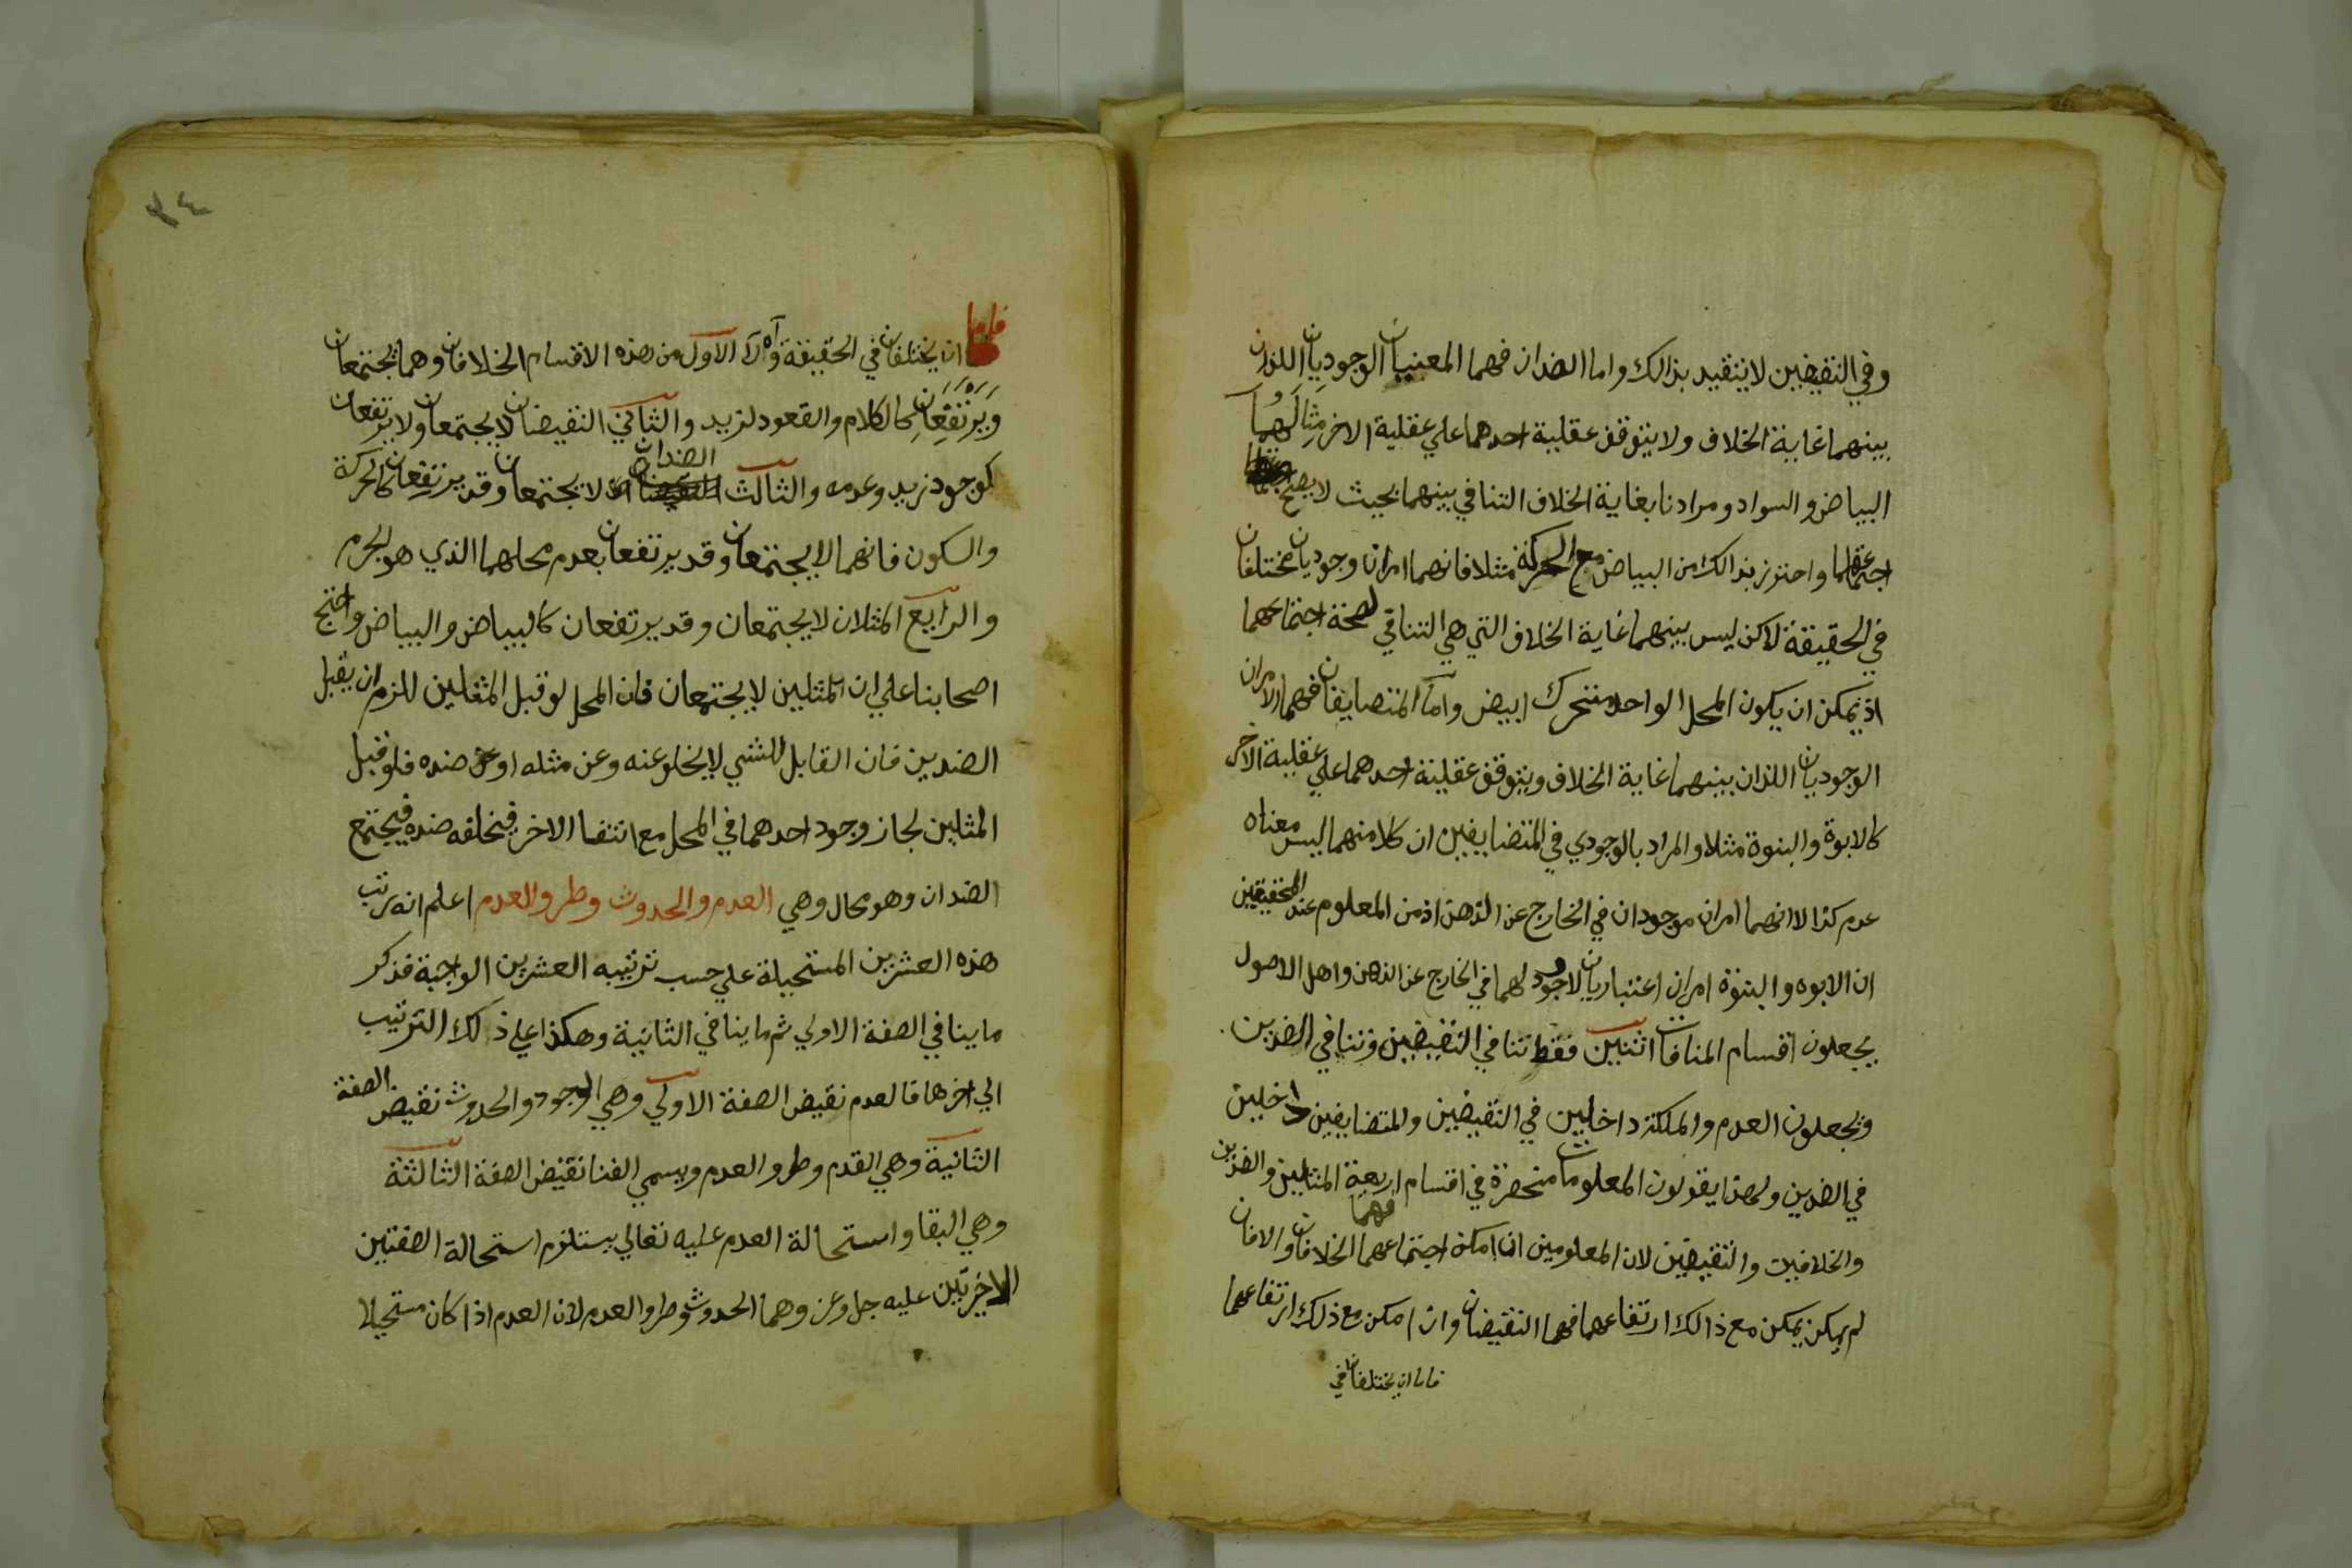 وفي النقيضين لا يتقيد بذالك واما الضدان فهما المعنيان الوجوديان اللذان
بينهما غاية الخلاف ولا يتوقف عقلية احدهما علي عقلية الاخر مثالهما
البياض والسواد ومرادنا بغاية الخلاف التنافي بينهما بحيث لا يصح
اجتماعهما واحترز بذالك من البياض مع الحركة مثلا فانهما امران وجوديان مختلفان
في الحقيقة لاكن ليس بينهما غاية الخلاف التي هي التنافي لصحة اجتماعهما
اذ يمكن ان يكون المحل الواحد متحرك ابيض واما المتضايفان فهما الامران
الوجوديان اللذان بينهما غاية الخلاف ويتوقف عقلية احدهما علي عقلية الاخر
كالابوة والبنوة مثلا والمراد بالوجودي في المتضايفين ان كلا منهما ليس معناه
عدم كذا لا انهما امران موجودان في الخارج عن الذهن اذ من المعلوم عند المحققين
ان الابوه والبنوة امران اعتباريان لا وجود لهما في الخارج عن الذهن واهل الاصول
يجعلون اقسام المنافات اثنين فقط تنافي النقيضين وتنافي الضدين
ويجعلون العدم والملكة داخلين في النقيضين والمتضايفين داخلين
في الضدين ولهذا يقولون المعلومات منحصرة في اقسام اربعة المثلين والضدين
والخلافين والنقيضين لان المعلومين ان امكن اجتماعهما فهما الخلافان والا فان
لم يمكن يمكن مع ذالك ارتفاعهما فهما النقيضان وان امكن مع ذلك ارتفاعهما
فاما ان يختلفا في
٣٤
فاما ان يختلفان في الحقيقة الاول من هذه الاقسام الخلافان وهما يجتمعان
ويرتفعان كالكلام والقعود لزيد والثاني النقيضان لا يجتمعان ولا يرتفعان
كوجود زيد وعدمه والثالث الضدان لا يجتمعان وقد يرتفعان كالحركة
والسكون فانهما لا يجتمعان وقد يرتفعان بعدم محلهما الذي هو الجرم
والرابع المثلان لا يجتمعان وقد يرتفعان كالبياض والبياض واحتج
اصحابنا علي ان المثلين لا يجتمعان فان المحل لو قبل المثلين للزم ان يقبل
الضدين فان القابل للشي لا يخلو عنه وعن مثله او عن ضده فلو قبل
المثلين لجاز وجود احدهما في المحل مع انتفا الاخر فيخلفه ضده فيجتمع
الضدان وهو محال وهي العدم والحدوث وطرو العدم اعلم انه رتب
هذه العشرين المستحيلة علي حسب ترتيبه العشرين الواجبة فذكر
ما ينافي الصفة الاولي ثم ما ينافي الثانية وهكذا علي ذلك الترتيب
الي اخرها فالعدم نقيض الصفة الاولي وهي الوجود والحدوث نقيض الصفة
الثانية وهي القدم وطرو العدم ويسمي الفنا نقيض الصفة الثالثة
وهي البقا واستحالة العدم عليه تعالي يستلزم استحالة الصفتين
الاخيرتين عليه جل وعز وهما الحدوث وطرو العدم لان العدم اذا كان مستحيلا